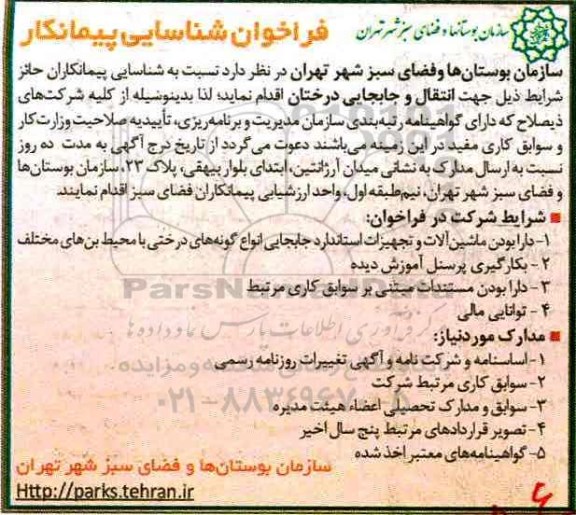 سازمان بوستانها و فضای سبز شهر تهران
فراخوان شناسایی پیمانکار
سازمان بوستان‌ها وفضای سبز شهر تهران در نظر دارد نسبت به شناسایی پیمانکاران حائز
شرایط ذیل جهت انتقال و جابجایی درختان اقدام نماید؛ لذا بدینوسیله از کلیه شرکت‌های
ذیصلاح که دارای گواهینامه رتبه‌بندی سازمان مدیریت و برنامه‌ریزی، تأییدیه صلاحیت وزارت کار
و سوابق کاری مفید در این زمینه می‌باشند دعوت می‌گردد از تاریخ درج آگهی به مدت ده روز
نسبت به ارسال مدارک به نشانی میدان آرژانتین، ابتدای بلوار بیهقی، پلاک ۲۳، سازمان بوستان‌ها
و فضای سبز شهر تهران، نیم‌طبقه اول، واحد ارزشیابی پیمانکاران فضای سبز اقدام نمایند.
شرایط شرکت در فراخوان:
۱- دارا بودن ماشین‌آلات و تجهیزات استاندارد جابجایی انواع گونه‌های درختی با محیط بن‌های مختلف
۲- بکارگیری پرسنل آموزش دیده
۳- دارا بودن مستندات مبتنی بر سوابق کاری مرتبط
۴- توانایی مالی
مدارک موردنیاز:
۱- اساسنامه و شرکت نامه و آگهی تغییرات روزنامه رسمی
۲- سوابق کاری مرتبط شرکت
۳- سوابق و مدارک تحصیلی اعضاء هیئت مدیره
۴- تصویر قراردادهای مرتبط پنج سال اخیر
۵- گواهینامه‌های معتبر اخذ شده
سازمان بوستان‌ها و فضای سبز شهر تهران
Http://parks.tehran.ir
ParsNamadData
۰۲۱-۸۸۳۴۹۶۷۰-۵